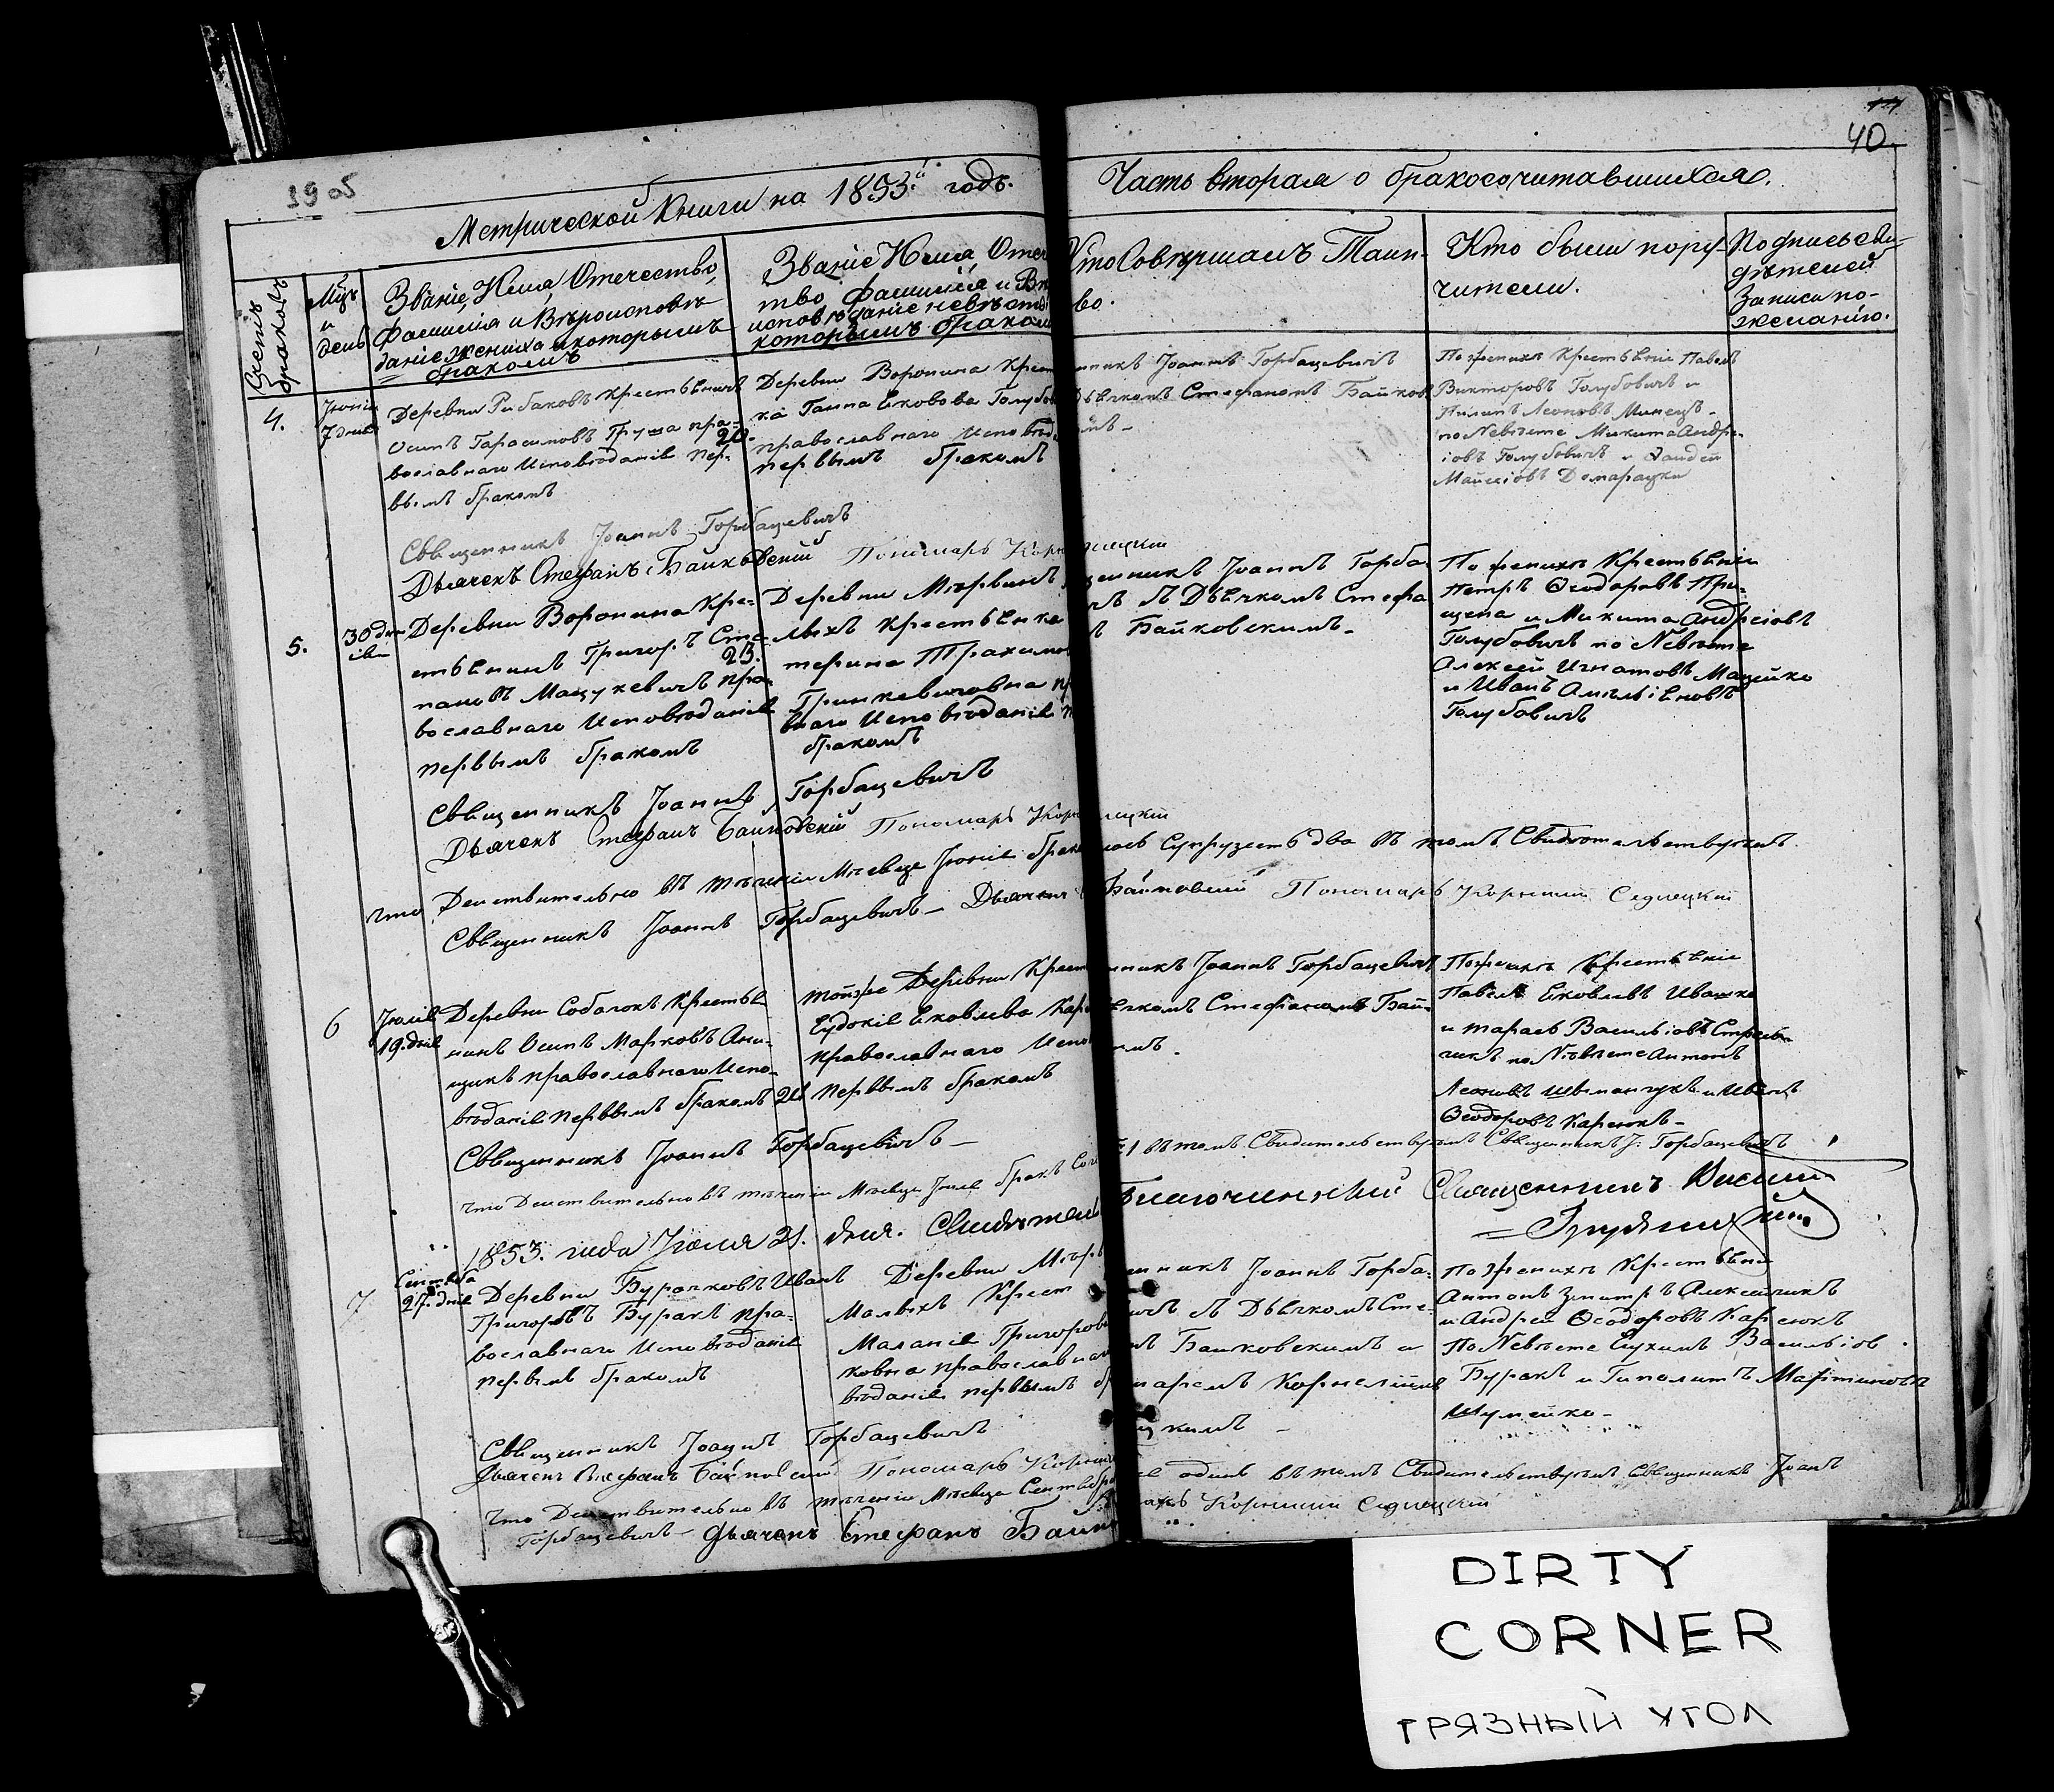 40.
1905
Метрической Книги на 1853.й годъ.
Часть вторая о бракосочитавшихся.
Счетъ браковъ
Мцъ
и
день
Званіе, Имя, Отечество,
Фамилія и Вѣроисповѣ-
даніе жениха и которымъ
бракомъ
Званіе Имя, Отече
тво Фамилія и Вѣ
исповѣданіе невѣсты
которымъ браком
Кто Совершалъ Таин-
во.
Кто были пору-
чители.
Подпись сви-
дѣтелей
Записи по-
желанію.
4.
Іюнія
7 дня
Деревни Рибаковъ Крестьянинъ
Осипъ Гарасимовъ Груша пра-
20.
вославнаго Исповѣданія пер-
вымъ бракомъ
Деревни Воронина Крест
ка Ганна Яковова Голубов
православнаго Исповѣд
первымъ бракомъ
нникъ Іоаннъ Горбацевичъ
Дьячкомъ Стефаномъ Байков
мъ-
По женихѣ Крестьяне Павелъ
Викторовъ Голубовичъ и
Пилипъ Леоновъ Минецъ-
по Невѣсте Микита Андре-
іовъ Голубовичъ и
Домарацки
Священникъ Іоаннъ Горбацевичъ
Дьячекъ Стефанъ Байковскій Пономарь Кор
5.
30 дня
Деревни Воронина Кре-
стьянинъ Григоръ Сте-
23.
пановъ Мацукевичъ пра-
вославнаго Исповѣданія
первымъ бракомъ
Деревни Мѣрвинъ
лыхъ Крестьянка
терина Трахимов
Гринкевичовна пр
внаго Исповѣданія п
бракомъ
щенникъ Іоаннъ Горба
чъ съ Дьячкомъ Стефа
ъ Байковскимъ-
По женихѣ Крестьяне
Петръ Ѳеодоровъ При-
щепа и Микита Андреіовъ
Голубовичъ по Невѣсте
Алексей Игнатовъ Мацейко
и Иванъ Амельяновъ
Голубовичъ
Священникъ Іоаннъ Горбацевичъ
Дьячекъ Стефанъ Байковскій Пономарь Кор
что Действительно въ теченіи Месяца Іюнія брак лось Супружествъ два въ томъ Свидетельствуемъ
Священникъ Іоаннъ Горбацевичъ- Дьячекъ Байковскій Пономарь Корнилій Седлецкій
6
Іюлія
19. дня
Деревни Собачокъ Крестья
нинъ Осипъ Марковъ Ани-
щикъ православнаго Испо-
вѣданія первымъ бракомъ 21
тойже Деревни Крест
Еудокія Яковлева Кар
православнаго Испо
первымъ бракомъ
нникъ Іоаннъ Горбацевичъ
ячкомъ Стефаномъ Бай-
имъ-
По женихѣ Крестьяне
Павелъ Яковлевъ Ивашка
и тарасъ Васильіовъ
чикъ по Невѣсте Антонъ
Леоновъ Шыманчукъ и Иванъ
Ѳеодоровъ Карсюкъ-
Священникъ Іоаннъ Горбацевичъ-
что Действительно въ теченіи Месяца Іюля бракъ 1 въ томъ Свидительствуемъ Священникъ І: Горбацевичъ
1853. года Іюля 21. дня. Свидѣтел Благочинный Священникъ Василій
7
Сентебра
27. дня
Деревни Бурачковъ Иванъ
Григоровъ Буракъ пра-
вославнаго Исповѣданія
первымъ бракомъ
Деревни Мѣрв
Малыхъ Крест
Маланія Григоров
ковна православнаг
вѣданія первымъ бр
нникъ Іоаннъ Горба-
ичъ съ Дьячкомъ Сте-
мъ Байковскимъ и
маремъ Корнеліимъ
цкимъ-
По женихѣ Крестьяне
Антонъ Змитръ Алексейчикъ
и Андрей Ѳеодоровъ Карсюкъ
По Невѣсте Еухимъ Васильіов
Буракъ и Гиполитъ Мартиновъ
Шумейко-
Священникъ Іоаннъ Горбацевичъ
Дьячекъ Стефанъ Байковскій Пономарь Корнил
что Действительно въ теченіи Месяца Сентебра одинъ въ томъ Свидительствуемъ Священникъ Іоанъ
Горбацевичъ- Дьячекъ Стефанъ Байко Корнилій Седлецкій
DIRTY
CORNER
ГРЯЗНЫЙ УГОЛ